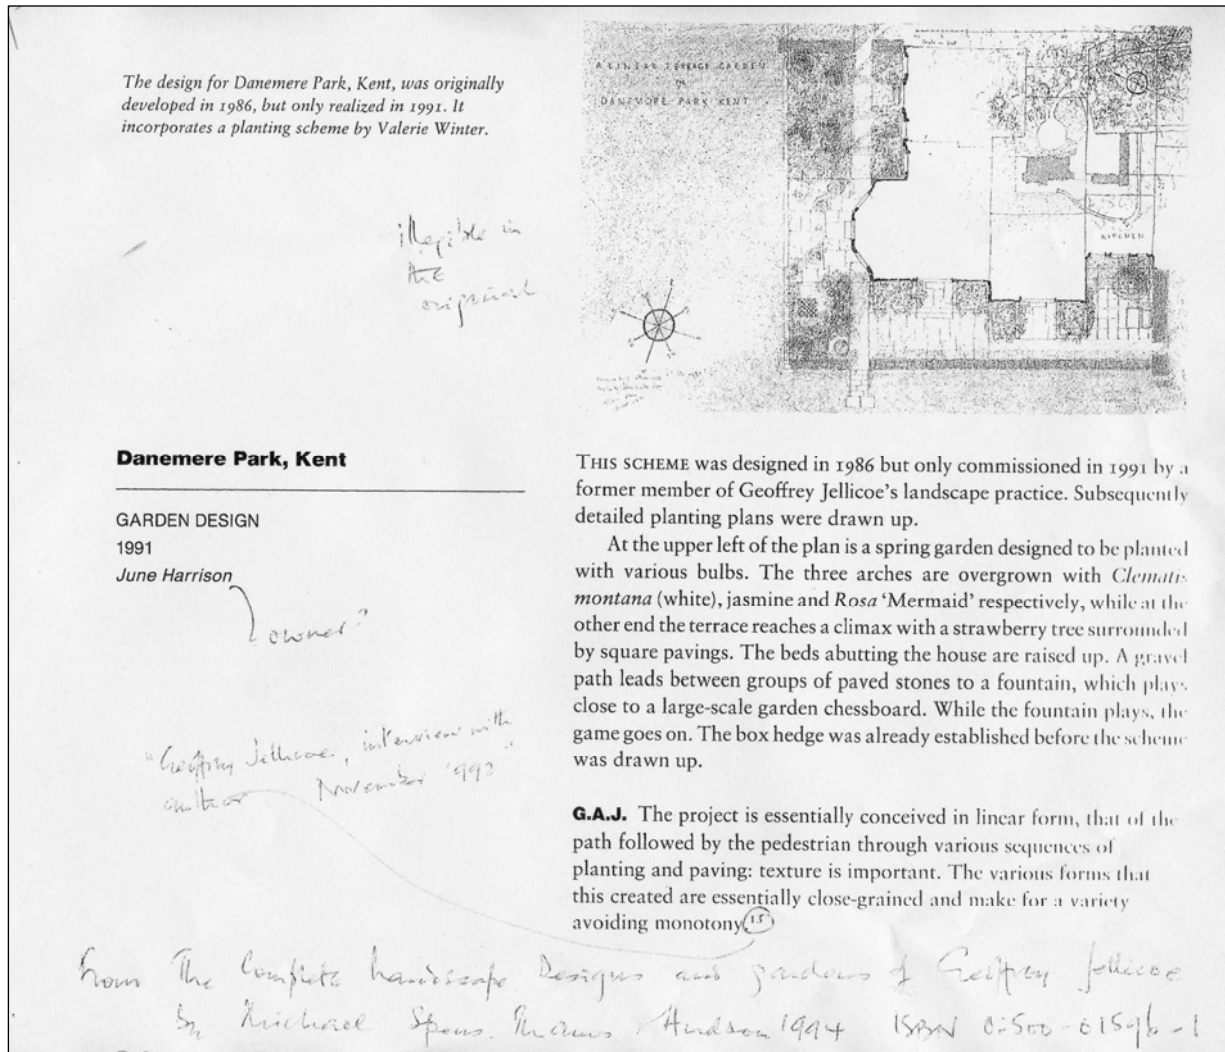 The design for Danemere Park, Kent, was originally
developed in 1986, but only realized in 1991. It
incorporates a planting scheme by Valerie Winter.
A LINEAR TERRACE GARDEN
DANEMORE PARK KENT
KITCHEN
illegible in
the
original
Danemere Park, Kent
GARDEN DESIGN
1991
June Harrison
owner?
"Geoffrey Jellicoe, interview with
author November 1992"
THIS SCHEME was designed in 1986 but only commissioned in 1991 by a
former member of Geoffrey Jellicoe's landscape practice. Subsequently
detailed planting plans were drawn up.
At the upper left of the plan is a spring garden designed to be planted
with various bulbs. The three arches are overgrown with Clematis
montana (white), jasmine and Rosa 'Mermaid' respectively, while at the
other end the terrace reaches a climax with a strawberry tree surrounded
by square pavings. The beds abutting the house are raised up. A gravel
path leads between groups of paved stones to a fountain, which plays
close to a large-scale garden chessboard. While the fountain plays, the
game goes on. The box hedge was already established before the scheme
was drawn up.
G.A.J. The project is essentially conceived in linear form, that of the
path followed by the pedestrian through various sequences of
planting and paving: texture is important. The various forms that
this created are essentially close-grained and make for a variety
avoiding monotony. 15
from The Complete Landscape Designs and gardens of Geoffrey Jellicoe
by Michael Spens. Thames Hudson 1994 ISBN 0-500-01596-1